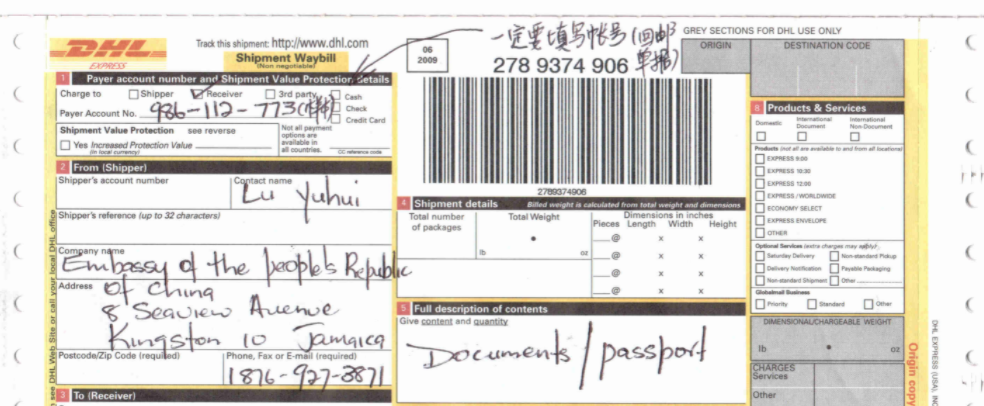 DHL
EXPRESS
Track this shipment: http://www.dhl.com
Shipment Waybill
(Non negotiable)
06
2009
一定要填写帐号(回邮
单据)
278 9374 906
GREY SECTIONS FOR DHL USE ONLY
ORIGIN
DESTINATION CODE
1 Payer account number and Shipment Value Protection details
Charge to Shipper Receiver 3rd party Cash
Check
Credit Card
Payer Account No. 986-112-773
Shipment Value Protection see reverse
Yes Increased Protection Value
(in local currency)
Not all payment
options are
available in
all countries.
CC reference code
2 From (Shipper)
Shipper's account number
Contact name
Lu Yuhui
Shipper's reference (up to 32 characters)
Company name
Embassy of the people's Republic
Address
of China
8 Seaview Avenue
Kingston 10 Jamaica
Postcode/Zip Code (required)
Phone, Fax or E-mail (required)
1876-927-3871
3 To (Receiver)
2789374906
4 Shipment details Billed weight is calculated from total weight and dimensions
Total number
of packages
Total Weight
lb oz
Dimensions in inches
Pieces Length Width Height
@ x x
@ x x
@ x x
@ x x
5 Full description of contents
Give content and quantity
Documents / passport
6 Products & Services
Domestic
International
Document
International
Non-Document
Products (not all are available to and from all locations)
EXPRESS 9:00
EXPRESS 10:30
EXPRESS 12:00
EXPRESS / WORLDWIDE
ECONOMY SELECT
EXPRESS ENVELOPE
OTHER
Optional Services (extra charges may apply)
Saturday Delivery Non-standard Pickup
Delivery Notification Payable Packaging
Non-standard Shipment Other
Globalmail Business
Priority Standard Other
DIMENSIONAL/CHARGEABLE WEIGHT
lb oz
CHARGES
Services
Other
Origin copy
DHL EXPRESS (USA), INC
see DHL Web Site or call your local DHL office